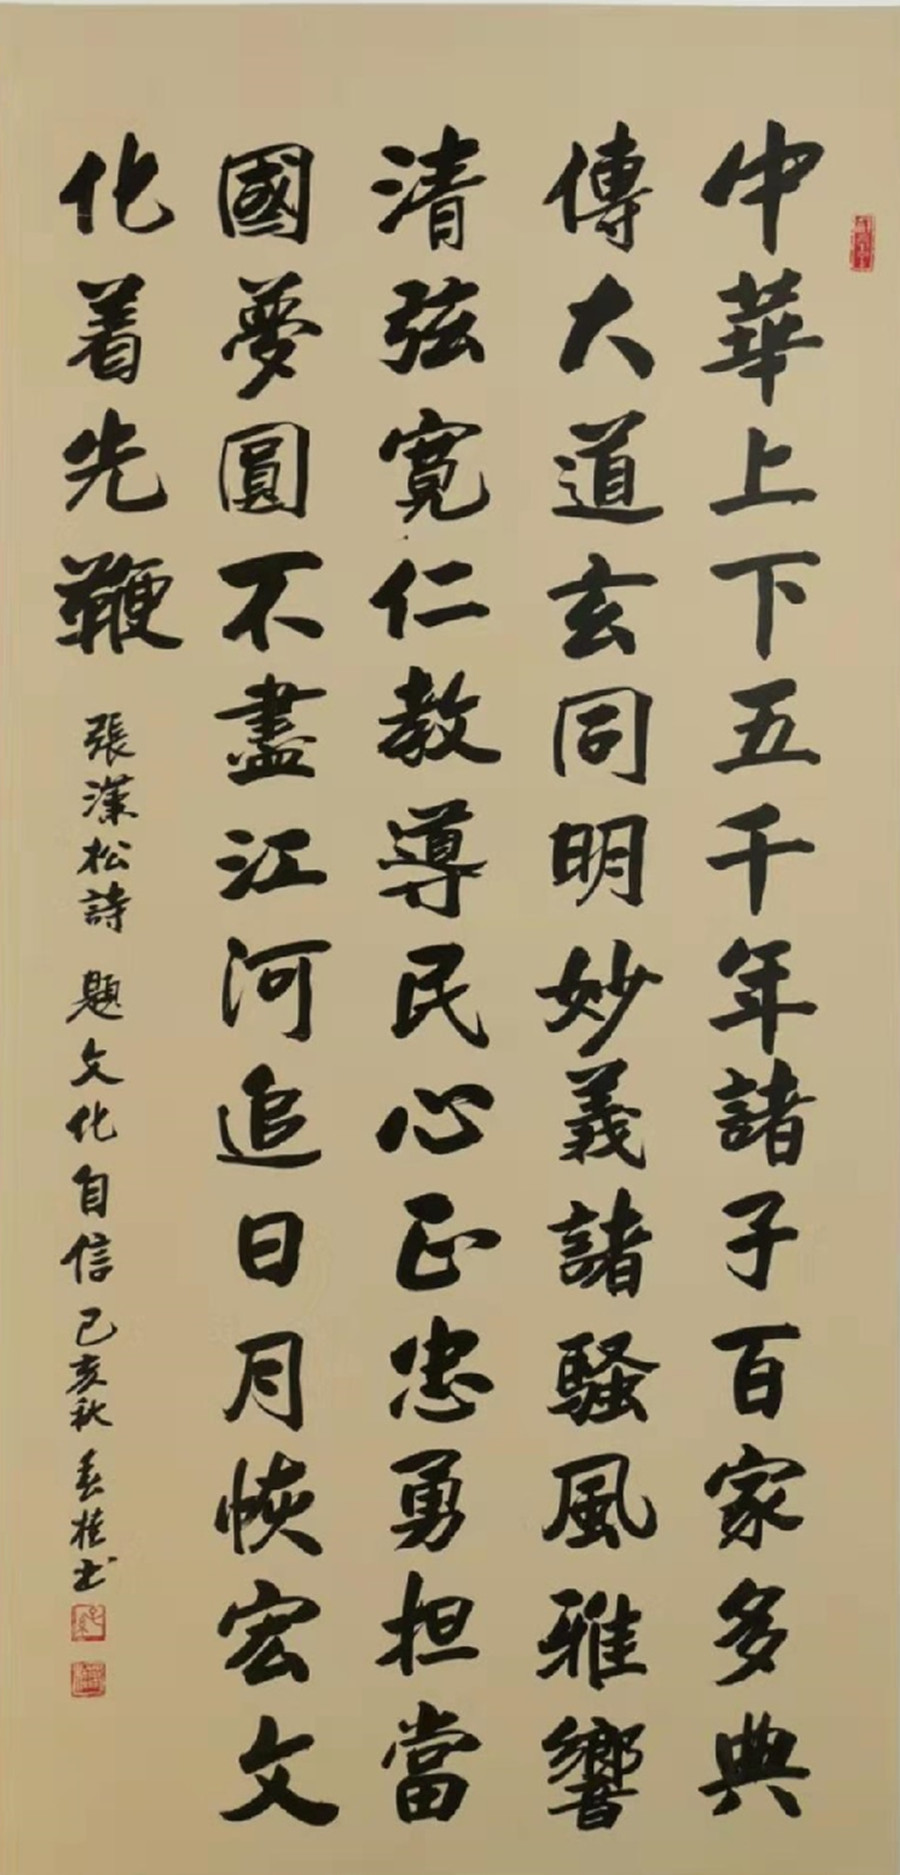 中華上下五千年諸子百家多典
傳大道玄同明妙義諸騷風雅響
清弦寬仁教導民心正忠勇担當
國夢圓不盡江河追日月恢宏文
化着先鞭
張漢松詩 題文化自信 己亥秋 春桂书